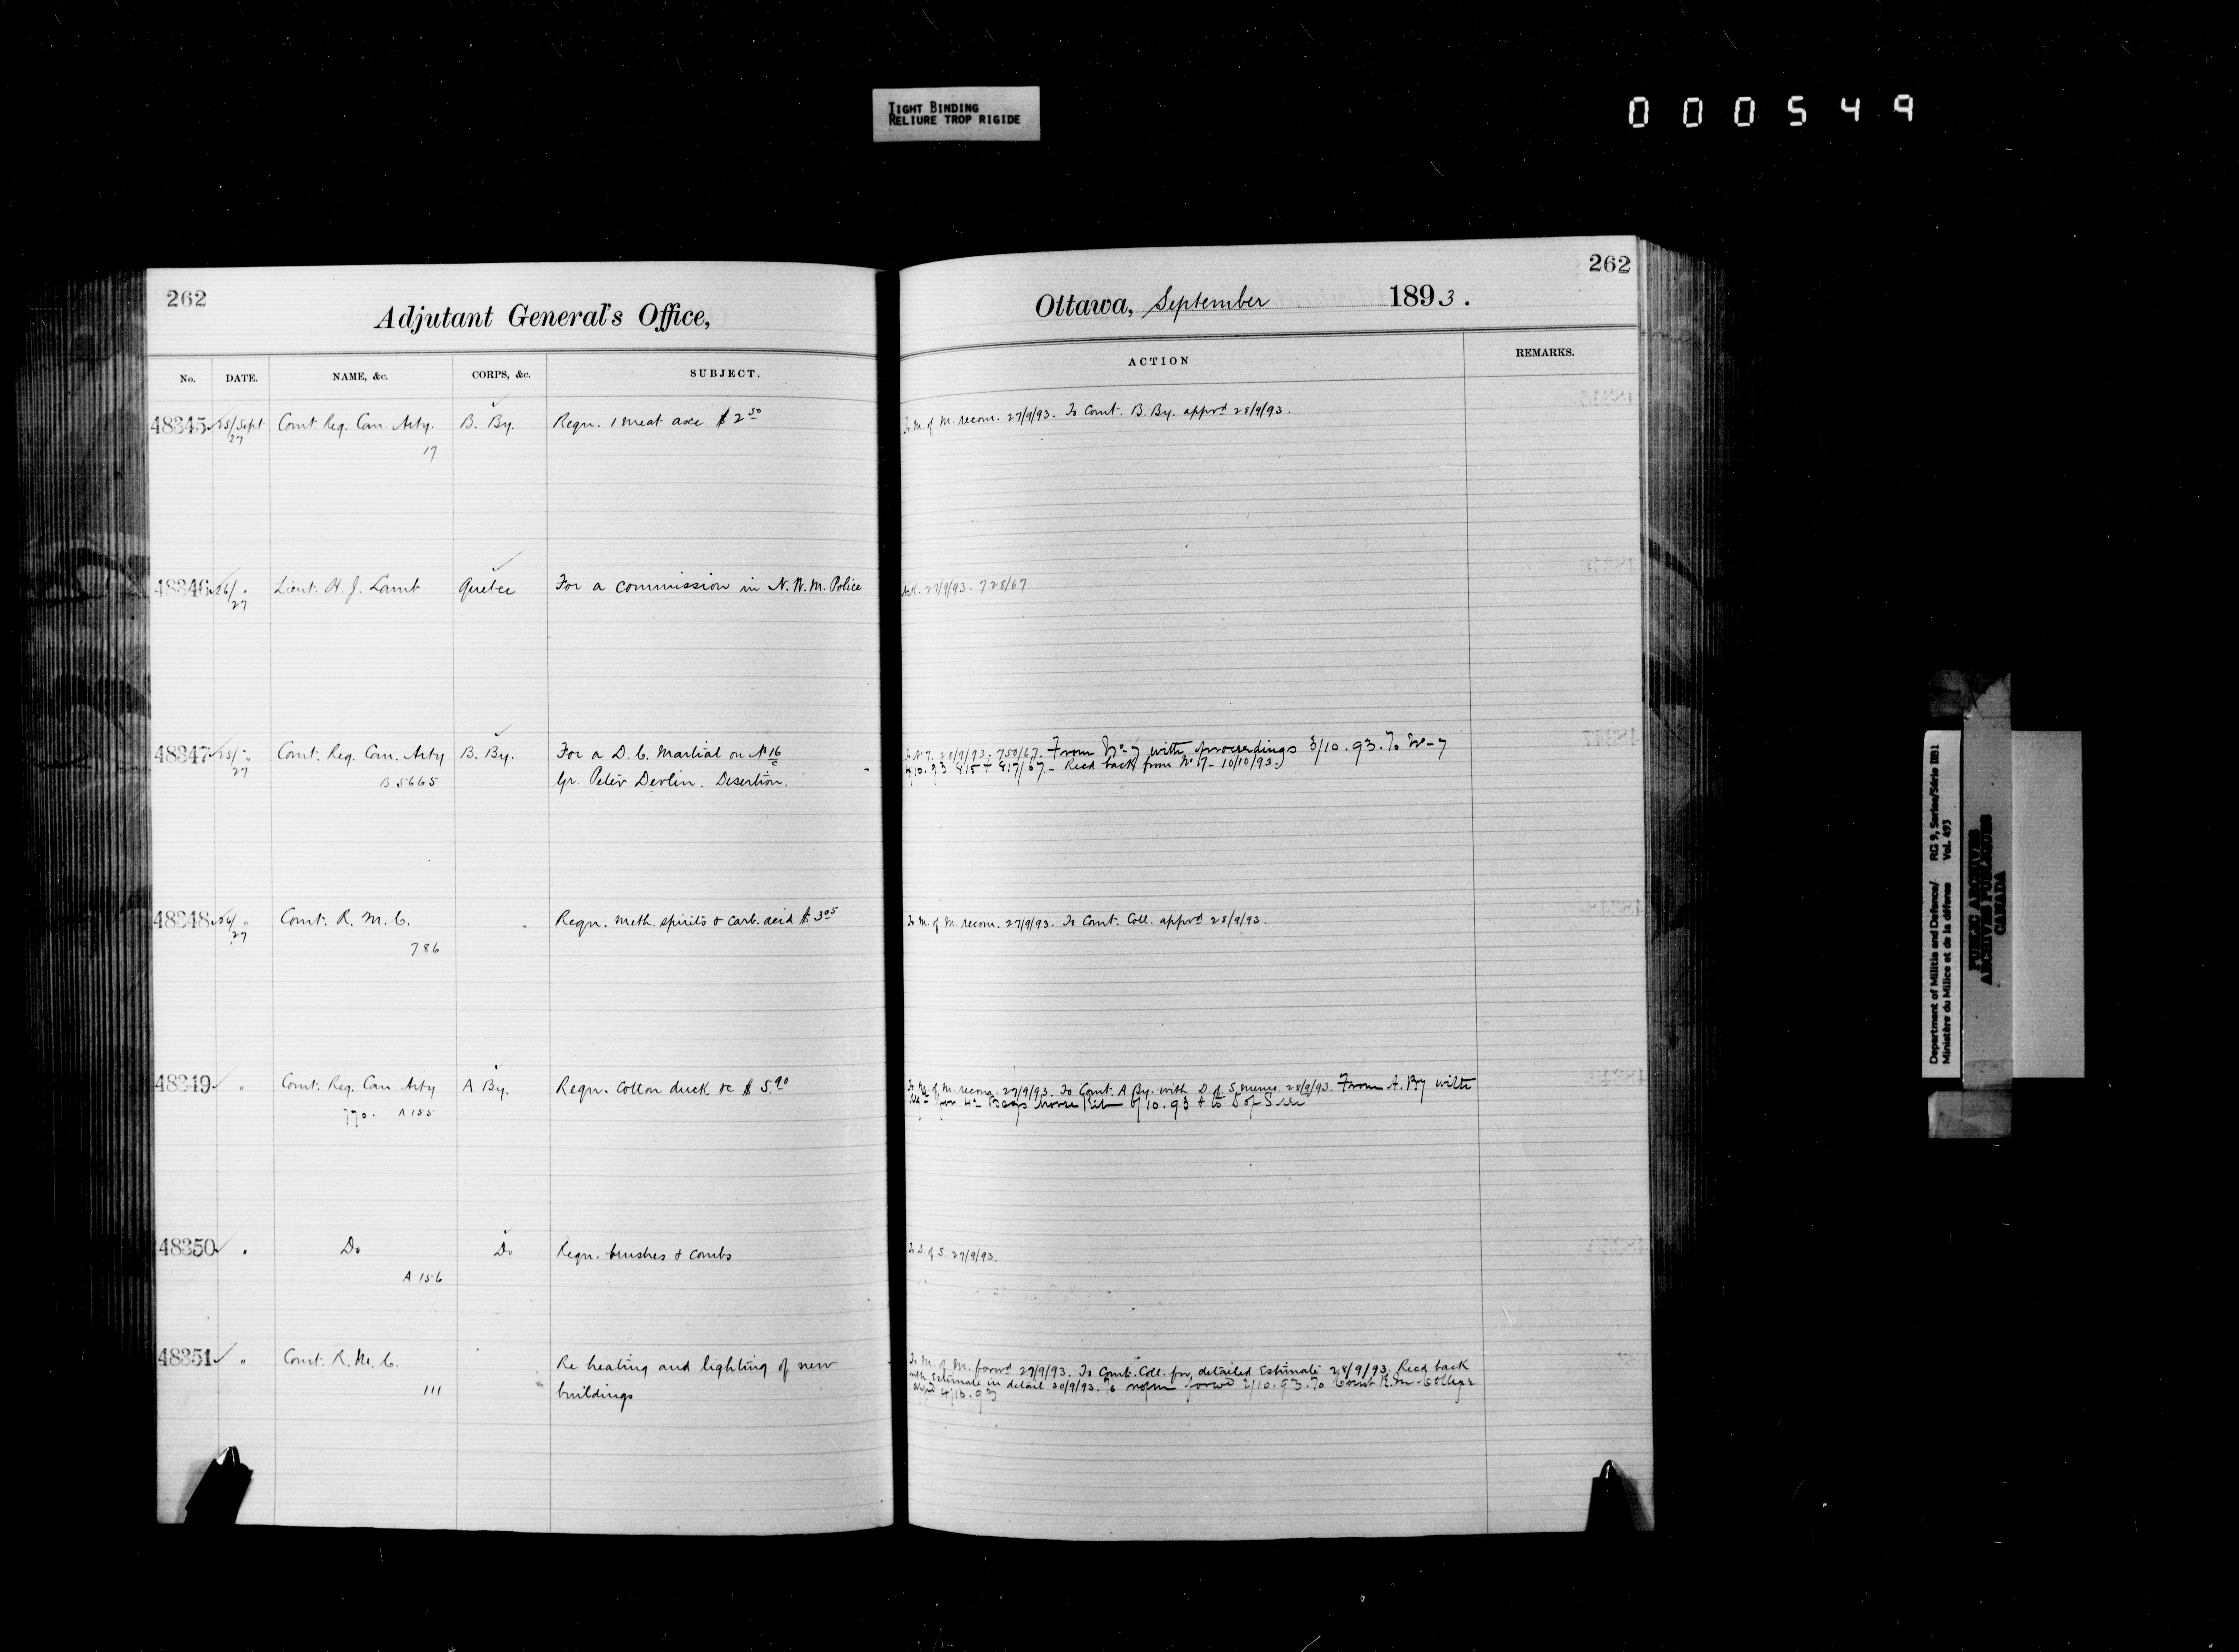 TIGHT BINDING
RELIURE TROP RIGIDE
000549
262
Adjutant General's Office,
No. DATE. NAME, &c. CORPS, &c. SUBJECT.
48345 25/Sept Comt. Reg. Can. Arty. B. By. Regn. 1 meat axe $2 50
27
17
48346 26/ " Lieut. H. J. Lamb Quebec For a commission in N.W.M. Police
27
48347 25/ " Comt. Reg. Can. Arty B. By. For a D. C. Martial on No 16
27 B 5665 Gr. Peter Devlin. Desertion.
48348 26/ " Comt. R. M. C. Regn. meth. spirits & carb. acid $3 05
27
786
48349 " Comt. Reg. Can. Arty A By. Regn. Cotton duck &c $5.90
770. A 155
48350 " Do Do Regn. brushes & combs
A 156
48351 " Comt. R. M. C. Re heating and lighting of new
111 buildings
262
Ottawa, September 1893.
ACTION REMARKS.
To M. of M. recom. 27/9/93. To Comt. B. By. apprd 28/9/93.
Ack. 27/9/93. 728/67
To No 7. 28/9/93. 750/67. From No 7 with proceedings 3/10.93. To No 7
4/10.93 815 & 817/67. Recd back from No 7 - 10/10/93.
To M. of M. recom. 27/9/93. To Comt. Coll. apprd 28/9/93.
To M. of M. recom. 27/9/93. To Comt. A By. with D of S. memo. 28/9/93. From A. By with
for 42 Bags horse Kit 6/10.93 & to D of S
To D. of S. 27/9/93.
To M. of M. forwd 27/9/93. To Comt. Coll. for detailed Estimate 28/9/93. Recd back
with Estimate in detail 30/9/93. To forwd 2/10.93. To Comt R.M. College
4/10.93
Department of Militia and Defence/ RG 9, Series/Série IIB1
Ministère du Milice et de la défense Vol. 493
PUBLIC ARCHIVES
ARCHIVES PUBLIQUES
CANADA